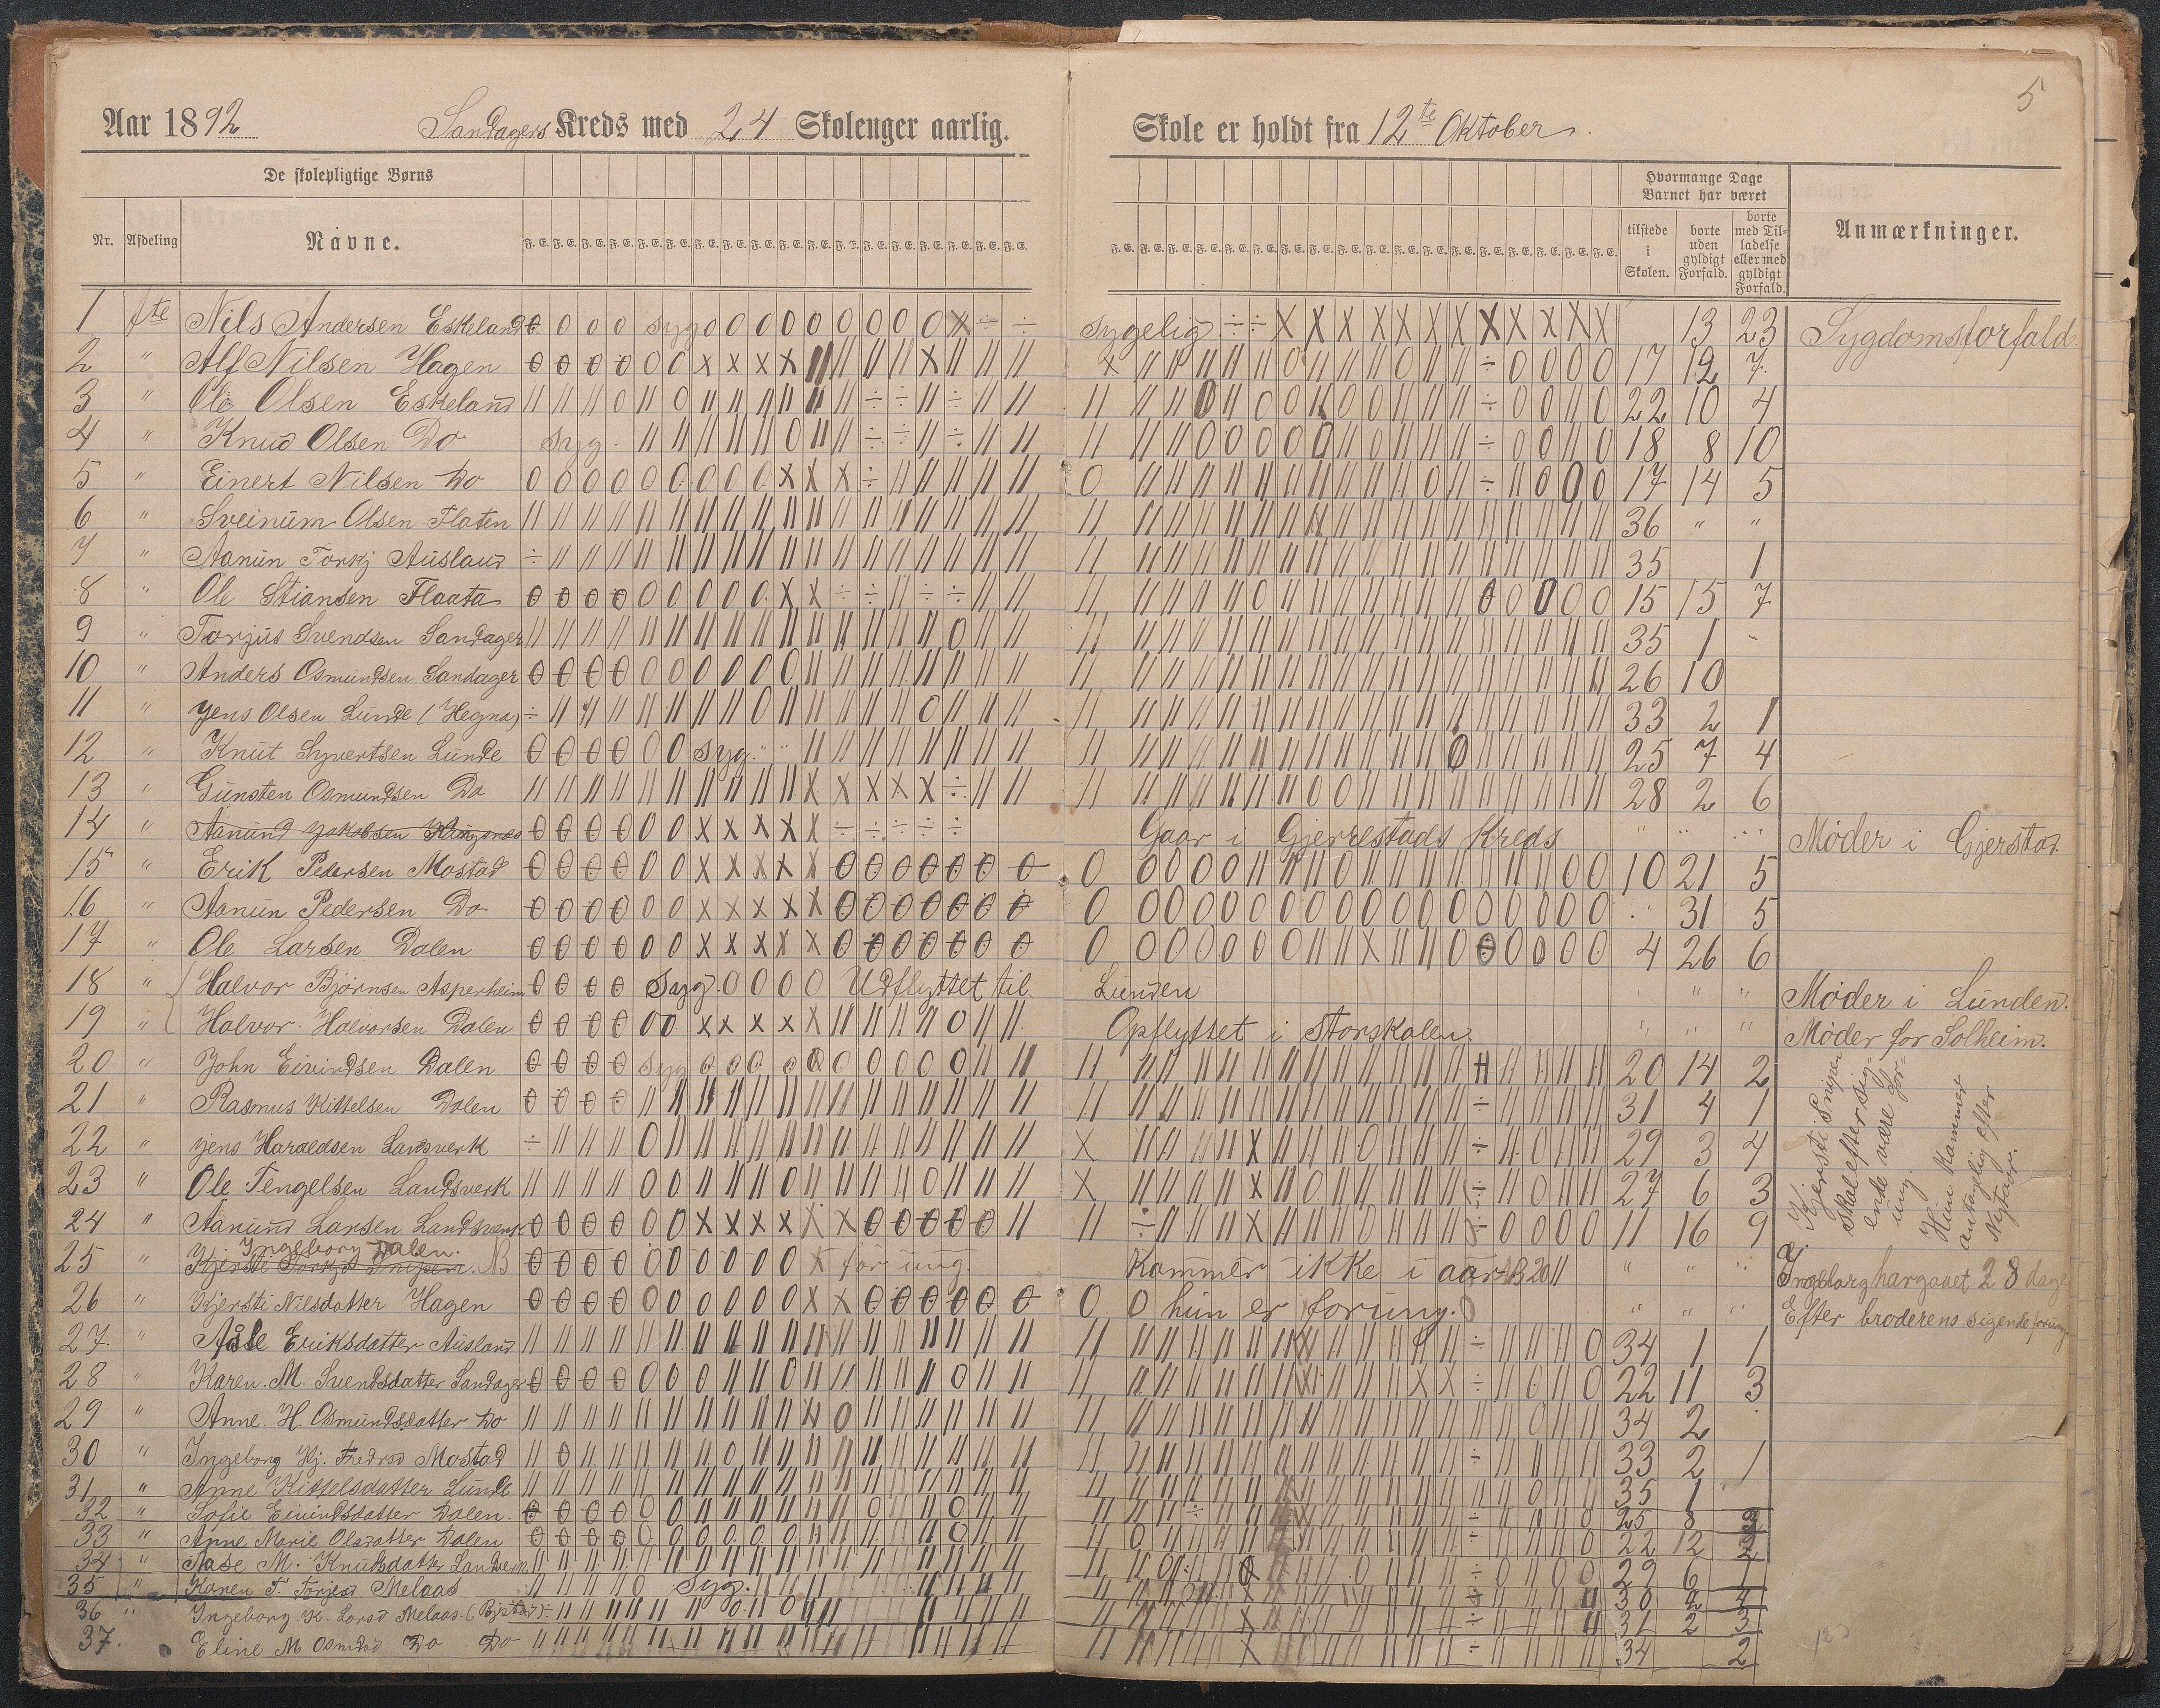 5
Aar 1892 Sandagers Kreds med 24 Skolenger aarlig.
Skole er holdt fra 12te Oktober.
De skolepligtige Børns
Nr. Afdeling Navne. F. E. F. E. F. E. F. E. F. E. F. E. F. E. F. E. F. E. F. E. F. E. F. E. F. E. F. E. F. E. F. E. F. E. F. E.
Hvormange Dage Barnet har været
tilstede i Skolen. borte uden gyldigt Forfald. borte med Tilladelse eller med gyldigt Forfald.
Anmærkninger.
1 1ste Nils Andersen Eskeland syg sygelig 13 23 Sygdomsforfald.
2 " Alf Nilsen Hagen 17 12 7
3 " Ole Olsen Eskeland 22 10 4
4 " Knud Olsen Do syg. 18 8 10
5 " Einert Nilsen Do 17 14 5
6 " Sveinüm Olsen Flaten 36 " "
7 " Aanün Torkj Aüsland 35 1
8 " Ole Stiansen Flaata 15 15 7
9 " Torjüs Svendsen Sandager 35 1 "
10 " Anders Osmündsen Sandager 26 10
11 " Jens Olsen Lünde (Hegna) 33 2 1
12 " Knüt Syvertsen Lünde syg. " " 25 7 4
13 " Günsten Osmündsen Do 28 2 6
14 " Aanünd Jakobsen Gaar i Gjerrestads Kreds " " " Møder i Gjerstad.
15 " Erik Pedersen Mostad 10 21 5
16 " Aanün Pedersen Do " 31 5
17 " Ole Larsen Dalen 4 26 6
18 " Halvor Bjørnsen Asperheim Syg. Udflyttet til Lünden " " Møder i Lünden.
19 " Halvor Halvorsen Dalen Opflyttet i Storskolen. " " " Møder for Solheim.
20 " John Eivindsen Dalen syg 20 14 2
21 " Rasmus Kittelsen Dalen 31 4 1
22 " Jens Haraldsen Landsverk 29 3 4
23 " Ole Tengelsen Landsverk 27 6 3
24 " Aanünd Larsen Landsverk 11 16 9
Kjersti Snipen skal efter sigende være for üng. Hün kommer antagelig efter Nytaar.
Ingeborg Dalen.
25 " Kjersti Torkjd Snipen. NB for üng. Kommer ikke i aar NB 20 " " " Ingeborg har gaaet 28 dage
26 " Kjersti Nilsdatter Hagen hün er for üng. " " " Efter broderens sigende for üng.
27. " Aasle Eriksdatter Aüsland 34 1 1
28 " Karen. M. Svendsdatter Sandager 22 11 3
29 " Anne. H. Osmündsdatter Do 34 2
30 " Ingeborg Kj. Fredrsd Mostad 33 2 1
31 " Anne Kittelsdatter Lünde 35 1
32 " Sofie Eivindsdatter Dalen. 25 8 3
33 " Anne Marie Olsdatter Dalen 22 12 2
34 " Aase M. Knudsdatter Landsverk 29 6 1
35 " Karen T. Torjesd Melaas Syg. 30 2 4
36 " Ingeborg. K. Larsd Melaas. 31 2 3
37. Eline M Osmdsd Do Do 34 2